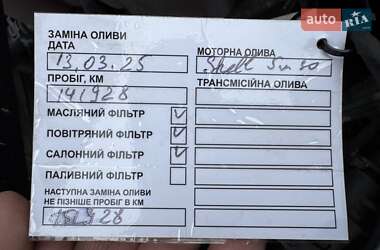 auto RIA
ЗАМІНА ОЛИВИ
ДАТА
13.03.25
МОТОРНА ОЛИВА
Shell 5w30
ПРОБІГ, КМ
141928
ТРАНСМІСІЙНА ОЛИВА
МАСЛЯНИЙ ФІЛЬТР
ПОВІТРЯНИЙ ФІЛЬТР
САЛОННИЙ ФІЛЬТР
ПАЛИВНИЙ ФІЛЬТР
НАСТУПНА ЗАМІНА ОЛИВИ
НЕ ПІЗНІШЕ ПРОБІГ В КМ